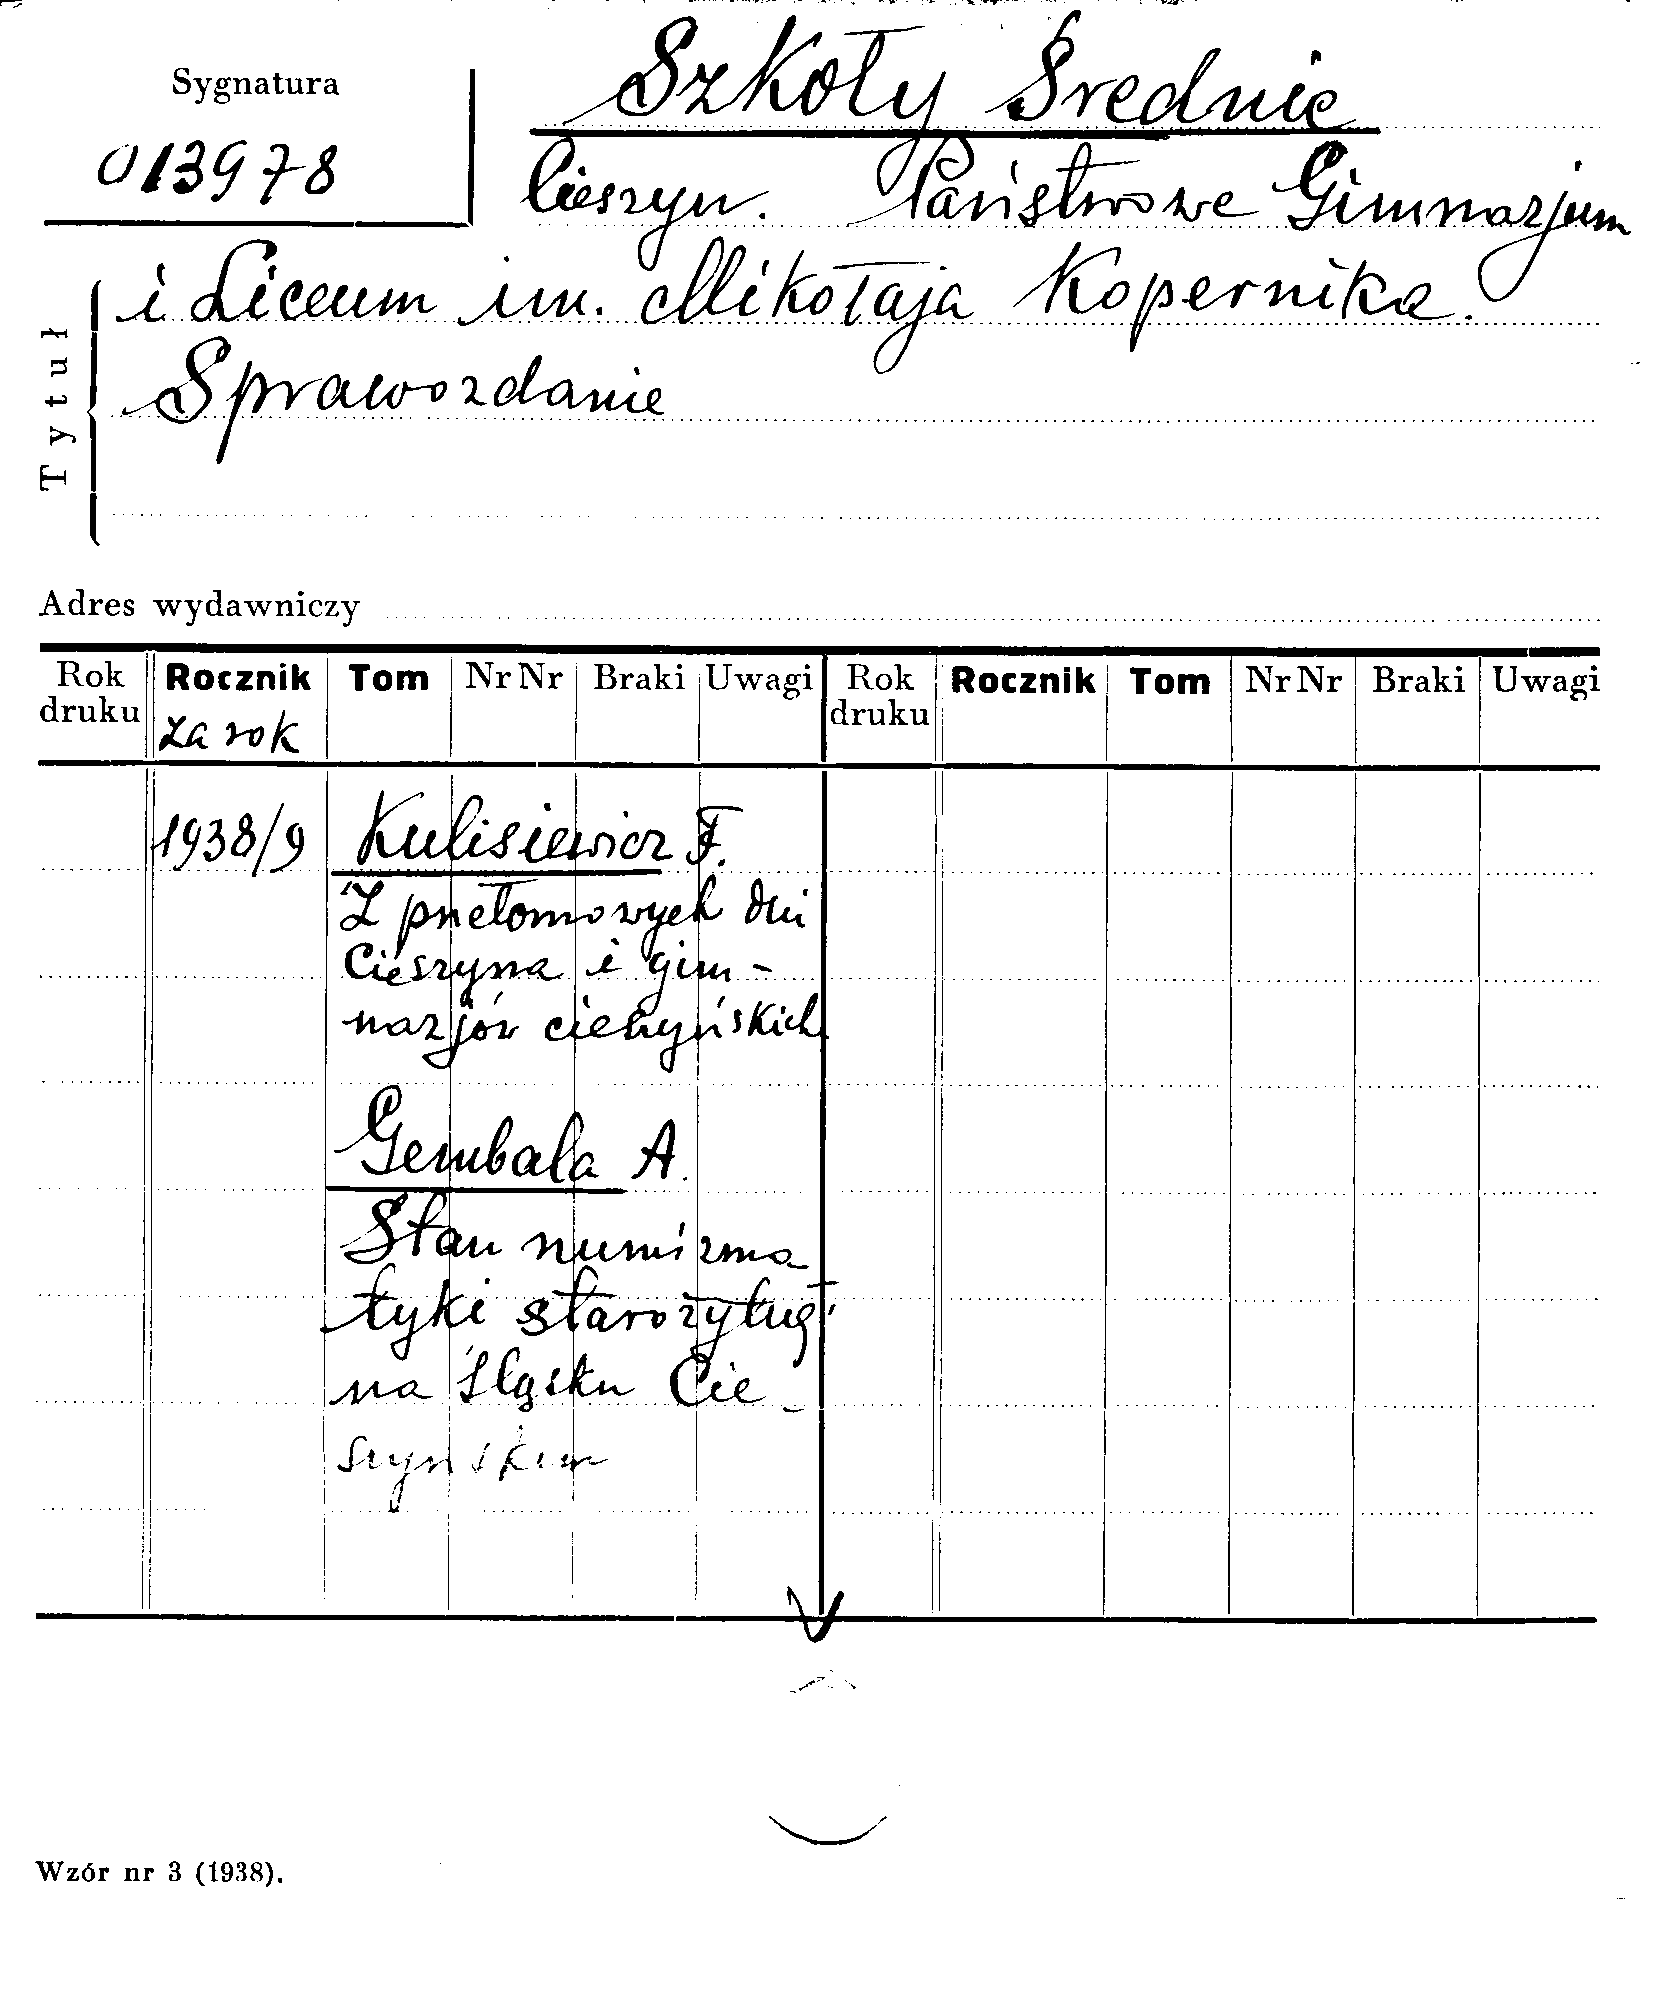 Sygnatura
013978
Szkoły Średnie
Cieszyn. Państwowe Gimnazjum
i Liceum im. Mikołaja Kopernika.
Sprawozdanie
Tytuł
Adres wydawniczy
Rok druku Rocznik Tom Nr Nr Braki Uwagi Rok druku Rocznik Tom Nr Nr Braki Uwagi
za rok
1938/9 Kulisiewicz F.
Z przełomowych dni
Cieszyna i gim-
nazjów cieszyńskich
Gembala A.
Stan numizma
tyki starożytnej
na Śląsku Cie_
szyńskim
Wzór nr 3 (1938).